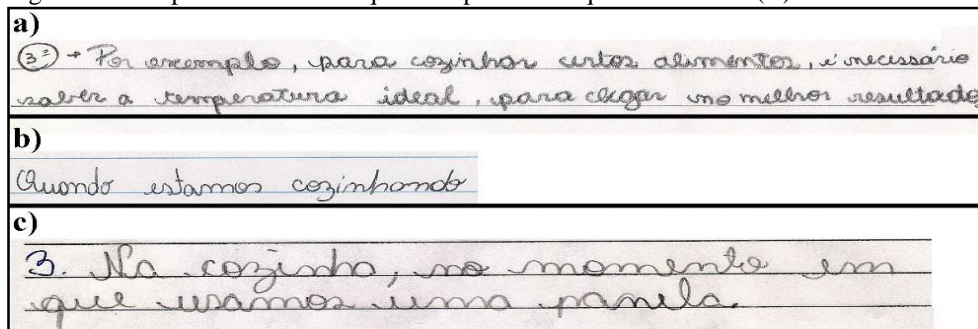 a)
3ª → Por exemplo, para cozinhar certos alimentos, é necessário
saber a temperatura ideal, para chegar no melhor resultado
b)
Quando estamos cozinhando
c)
3. Na cozinha, no momento em
que usamos uma panela.